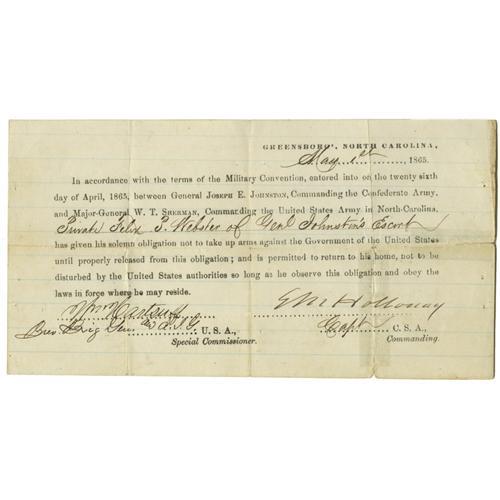 GREENSBORO', NORTH CAROLINA,
May 1st, 1865.
In accordance with the terms of the Military Convention, entered into on the twenty sixth
day of April, 1865, between General JOSEPH E. JOHNSTON, Commanding the Confederate Army,
and Major-General W. T. SHERMAN, Commanding the United States Army in North-Carolina,
Private Felix T. Webster of Genl Johnston's Escort
has given his solemn obligation not to take up arms against the Government of the United States
until properly released from this obligation; and is permitted to return to his home, not to be
disturbed by the United States authorities so long as he observe this obligation and obey the
laws in force where he may reside.
Wm Hartsuff E M Holloway
Bvt Brig Gen. & A.I.G. U. S. A., Capt C. S. A.,
Special Commissioner. Commanding.